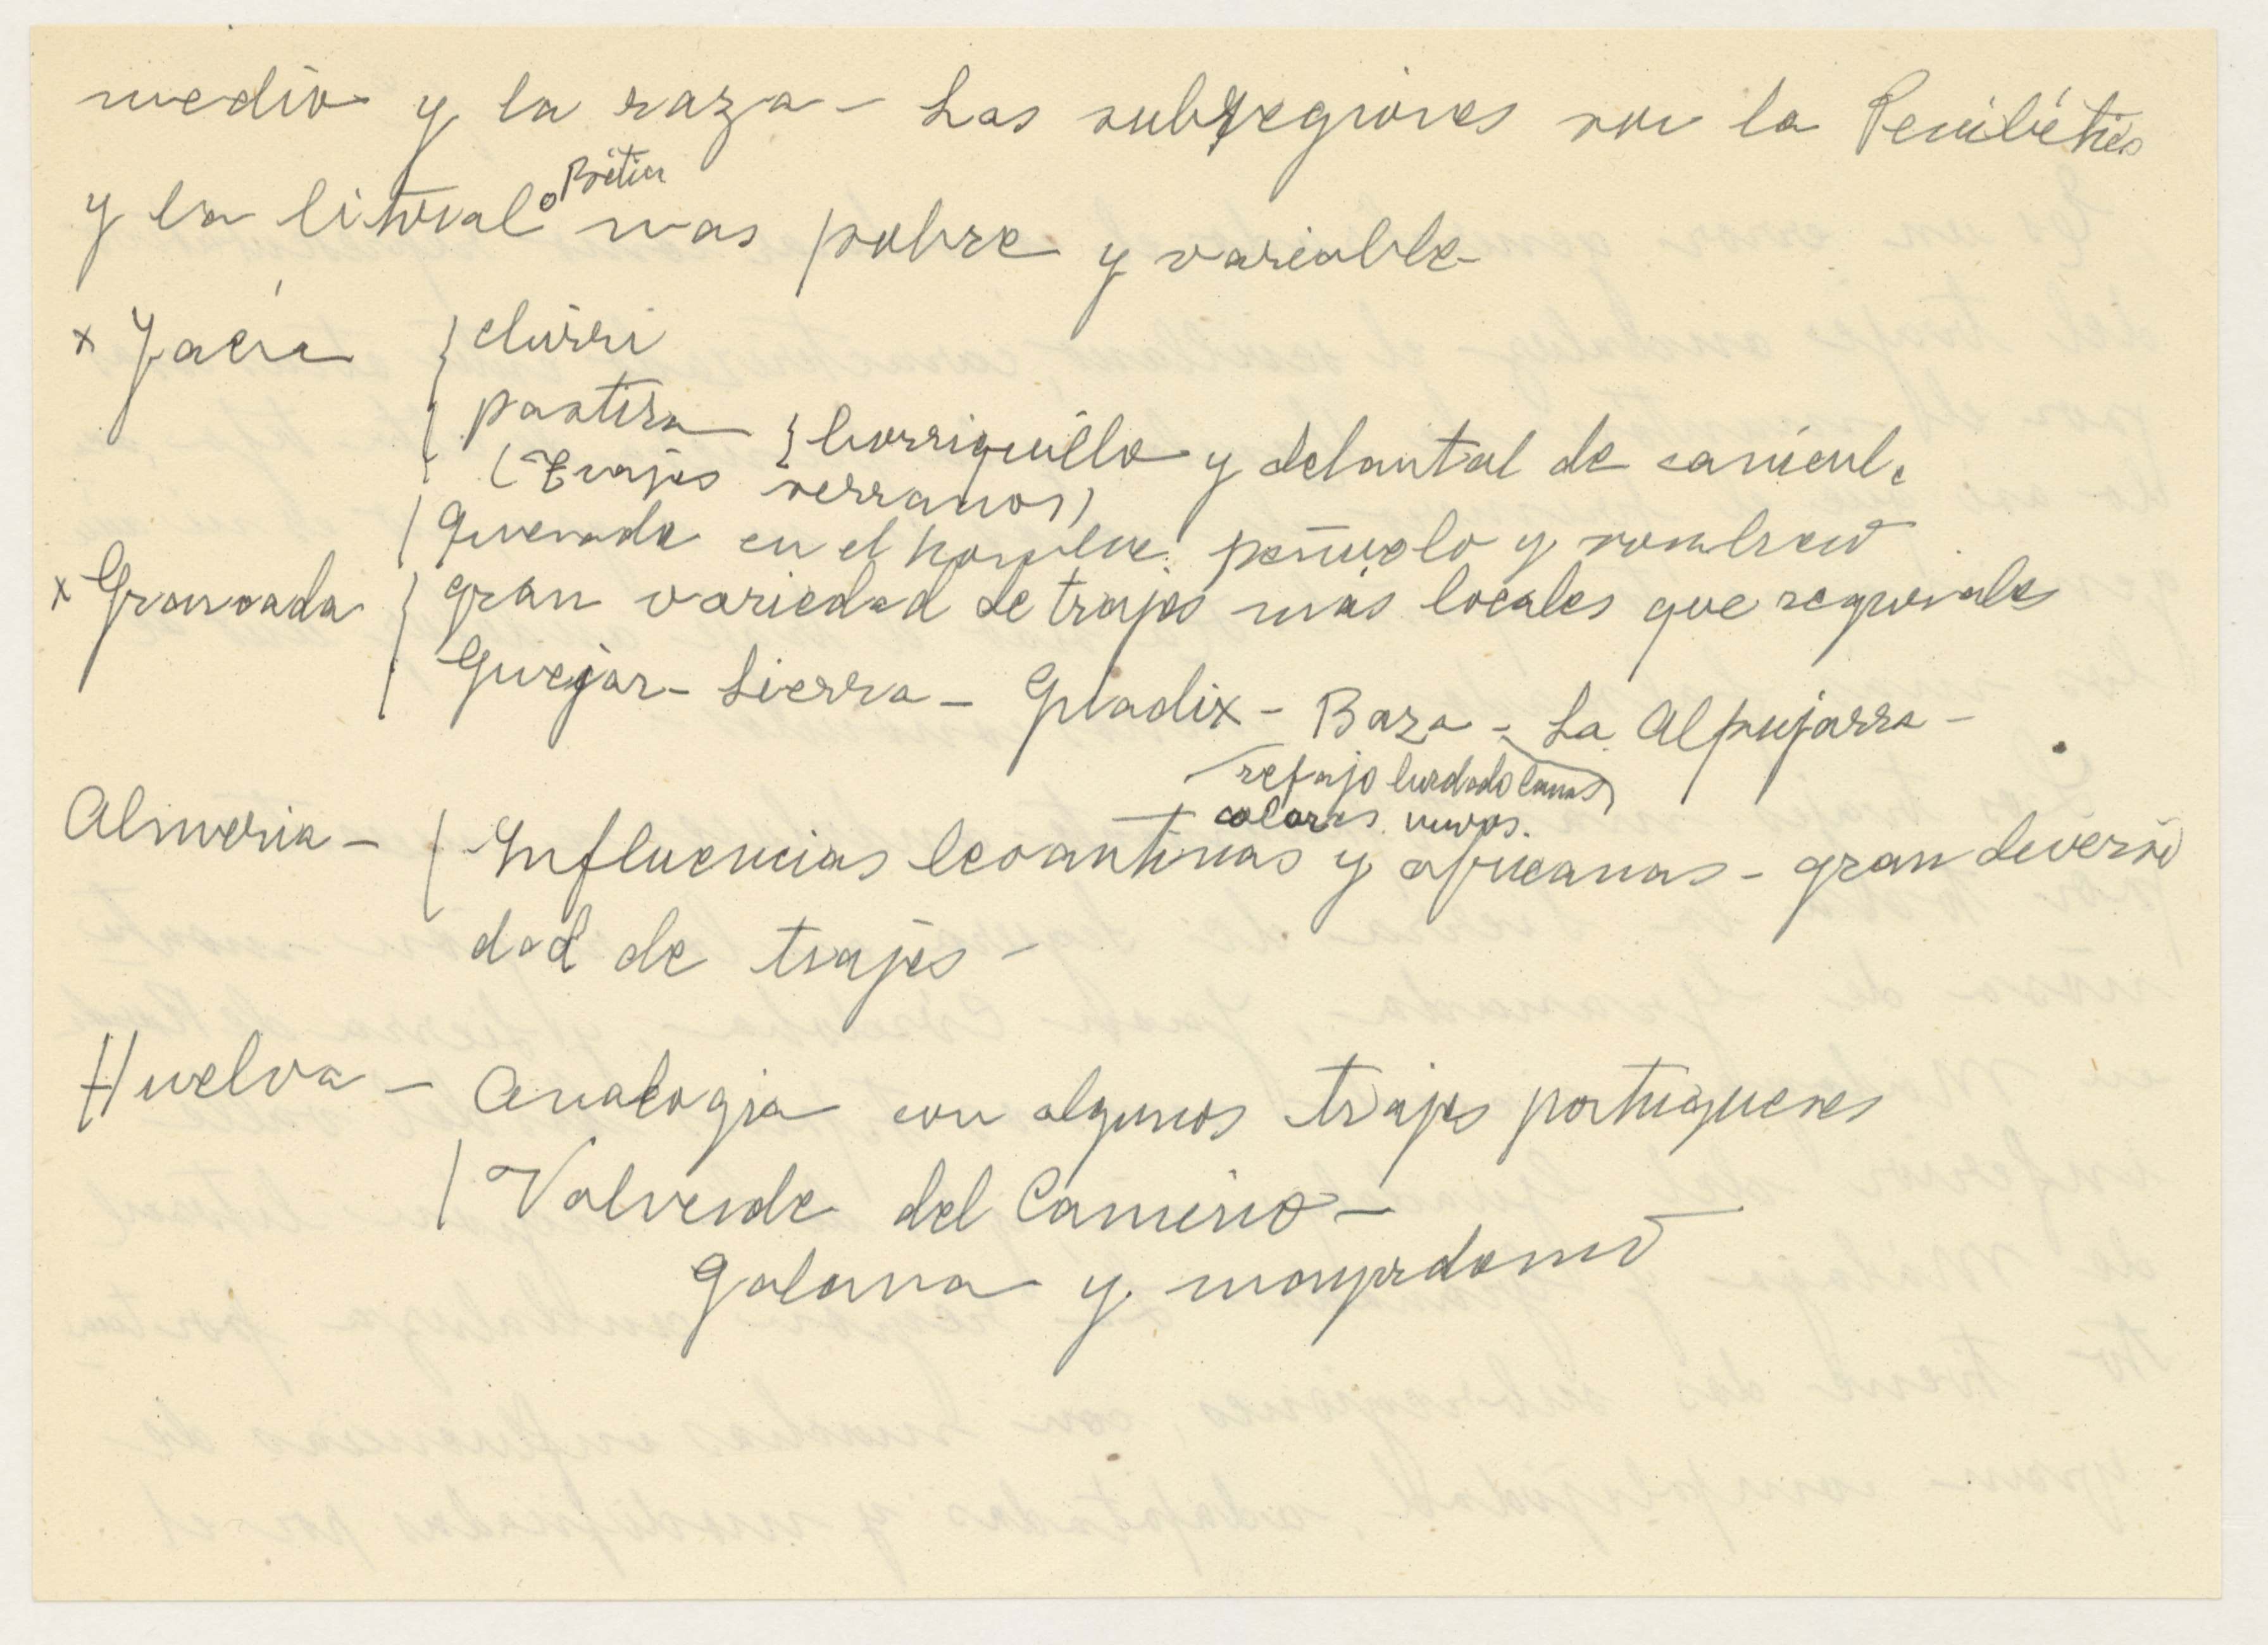 medio y la raza - Las subregiones son la Penibética
y la litoral o Bética mas pobre y variable -
x Jaén { chirri
pastira { borriquillo y delantal de
(Trajes serranos)
en el hombre. pañuelo y sombrero
x Granada { gran variedad de trajes más locales que regionales
Guejar - Sierra - Guadix - Baza - La Alpujarra -
refajo bordado lanas
colores vivos.
Almeria - { Influencias levantinas y africanas - gran diversi
dad de trajes -
Huelva - Analogia con algunos trajes portugueses
Valverde del Camino -
Galana y mayordomo